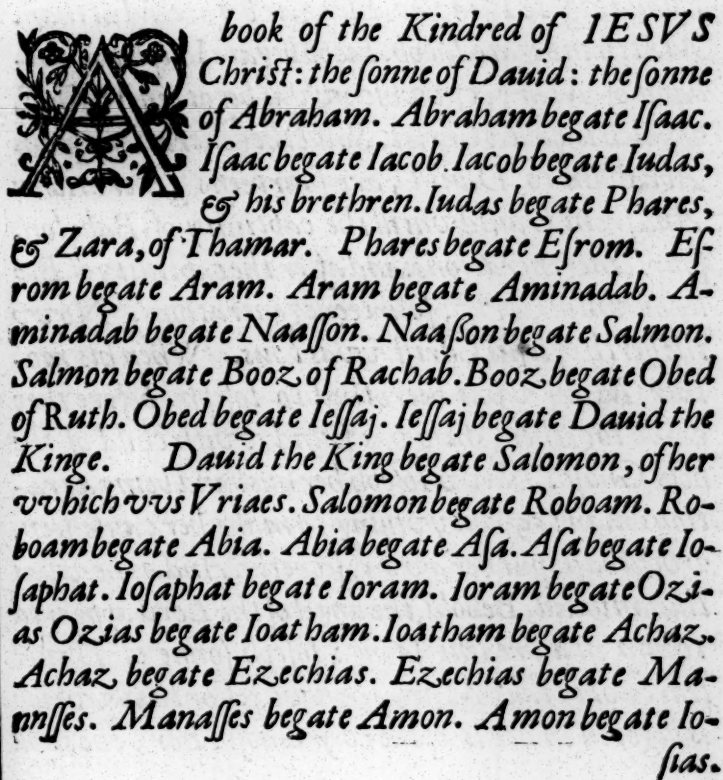 A book of the Kindred of IESVS
Chriſt: the ſonne of Dauid: the ſonne
of Abraham. Abraham begate Iſaac.
Iſaac begate Iacob. Iacob begate Iudas,
& his brethren. Iudas begate Phares,
& Zara, of Thamar. Phares begate Eſrom. Eſ-
rom begate Aram. Aram begate Aminadab. A-
minadab begate Naaſſon. Naaßon begate Salmon.
Salmon begate Booz of Rachab. Booz begate Obed
of Ruth. Obed begate Ieſſaj. Ieſſaj begate Dauid the
Kinge. Dauid the King begate Salomon, of her
vvhich vvs Vriaes. Salomon begate Roboam. Ro-
boam begate Abia. Abia begate Aſa. Aſa begate Io-
ſaphat. Ioſaphat begate Ioram. Ioram begate Ozi-
as Ozias begate Ioatham. Ioatham begate Achaz.
Achaz begate Ezechias. Ezechias begate Ma-
nnſſes. Manaſſes begate Amon. Amon begate Io-
ſias.